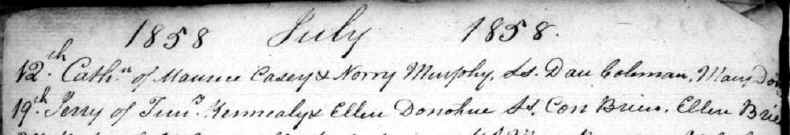 1858 July 1858.
12th. Cathn of Maurice Casey & Norry Murphy. Ss. Dan Coleman, Mary Don
19th Jerry of Timo. Kennealy & Ellen Donohue Ss. Con Brien. Ellen Brie